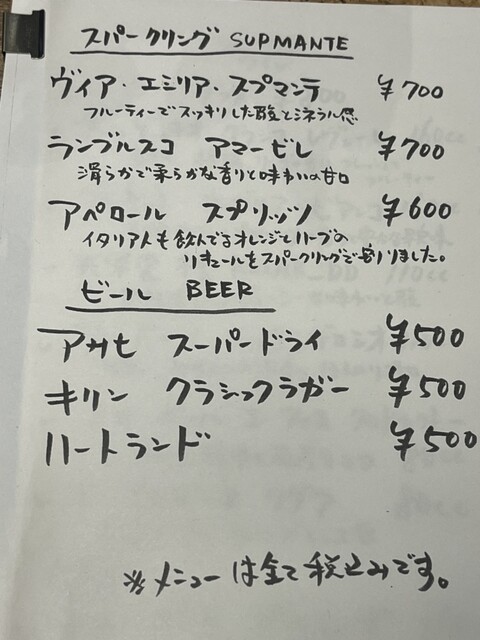 スパークリング SUPMANTE
ヴィア・エミリア・スプマンテ ¥700
フルーティーでスッキリした酸とミネラル感
ランブルスコ アマービレ ¥700
滑らかで柔らかな香りと味わいの甘口
アペロール スプリッツ ¥600
イタリア人も飲んでるオレンジとハーブの
リキュールをスパークリングで割りました。
ビール BEER
アサヒ スーパードライ ¥500
キリン クラシックラガー ¥500
ハートランド ¥500
※メニューは全て税込みです。